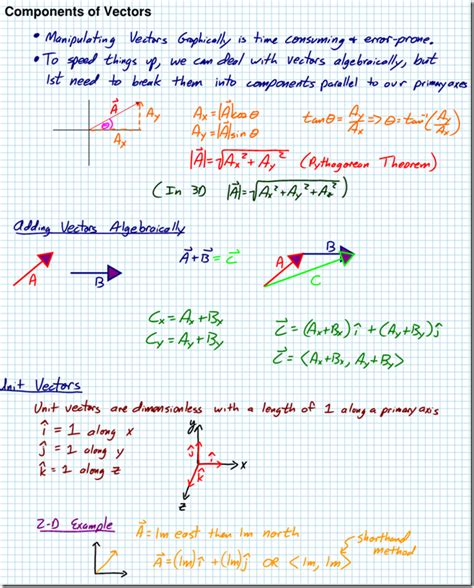 Components of Vectors
• Manipulating Vectors Graphically is time consuming & error-prone.
• To speed things up, we can deal with vectors algebraically, but
1st need to break them into components parallel to our primary axes
A⃗ Ay θ Ax
Ax = |A⃗|cosθ
Ay = |A⃗|sinθ
tanθ = Ay/Ax => θ = tan⁻¹(Ay/Ax)
|A⃗| = √(Ax² + Ay²) (Pythagorean Theorem)
(In 3D |A⃗| = √(Ax² + Ay² + Az²))
Adding Vectors Algebraically
A B
A⃗ + B⃗ = C⃗
A B C
Cx = Ax + Bx
Cy = Ay + By
C⃗ = (Ax + Bx)î + (Ay + By)ĵ
C⃗ = <Ax + Bx, Ay + By>
Unit Vectors
Unit vectors are dimensionless with a length of 1 along a primary axis
î = 1 along x
ĵ = 1 along y
k̂ = 1 along z
y ĵ î k̂ x z
2-D Example
A⃗ = 1m east then 1m north
A⃗ = (1m)î + (1m)ĵ OR <1m, 1m>
shorthand
method